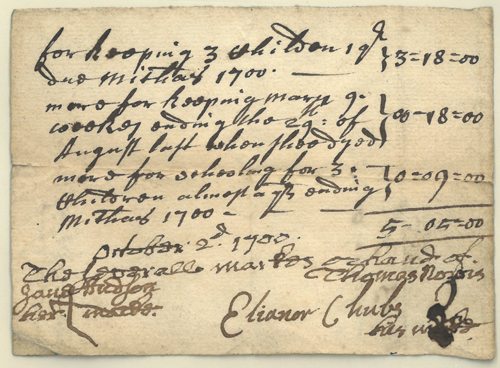 for keeping 3 Children 1 qr } 3=18=00
due Mithas 1700. —
more for keeping mary 9=
weekes ending the 29th: of } 00-18=00
August last when shee dyed
more for schooling for 3:
Children almost a qr ending } 0=09=00
Mithas 1700 -
5-05=00
october 2d. 1700.
The severall markes or hand of.
Jane Hudson Thomas Norris
her marke. Elianor Chubs
his marke.